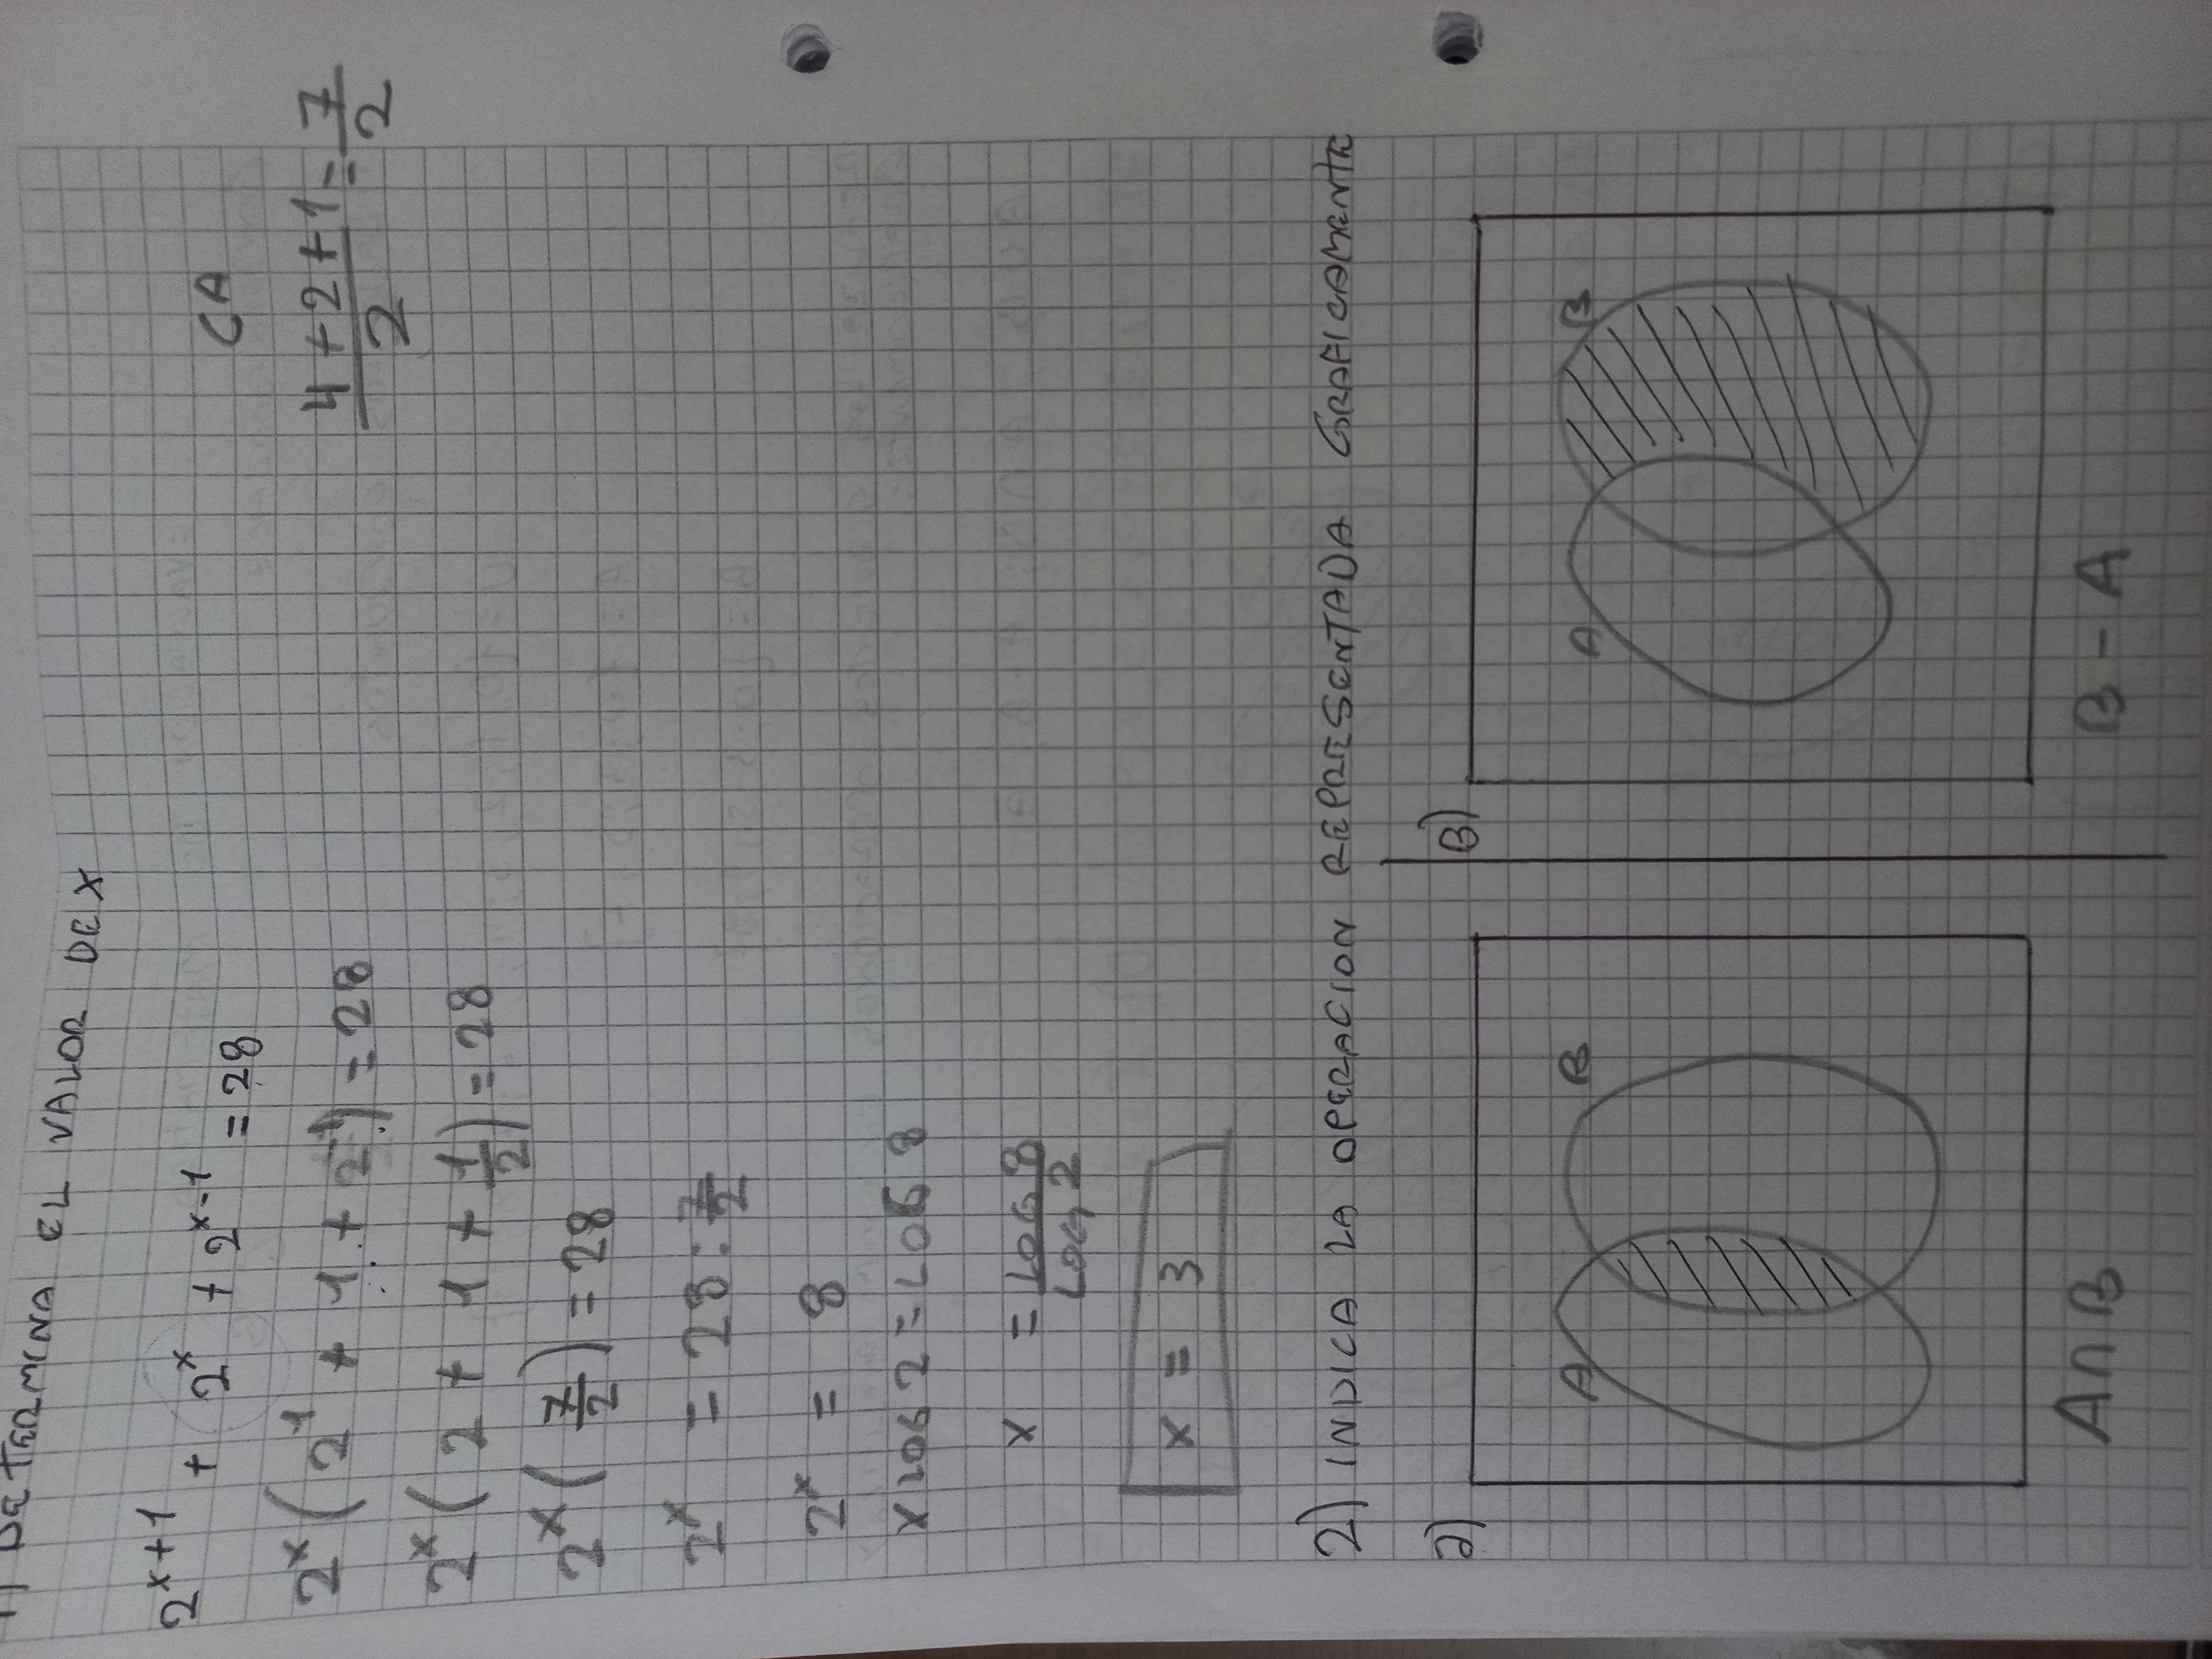 1) DETERMINA EL VALOR DE X
2^(x+1) + 2^x + 2^(x-1) = 28
CA
2^x (2^1 + 1 + 2^-1) = 28
(4+2+1)/2 = 7/2
2^x (2 + 1 + 1/2) = 28
2^x (7/2) = 28
2^x = 28 : 7/2
2^x = 8
x LOG 2 = LOG 8
x = LOG 8 / LOG 2
x = 3
2) INDICA LA OPERACION REPRESENTADA GRAFICAMENTE
a)
B)
A B
A B
A ∩ B
B - A